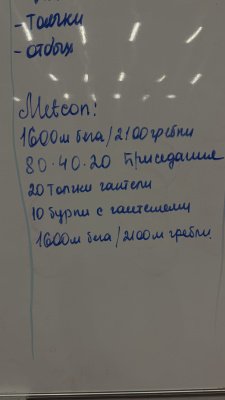 - толчки
- отдых
Metcon:
1600м бега/2100гребли
80·40·20 Приседания
20 толчки гантели
10 бурпи с гантелями
1600м бега/2100м гребли